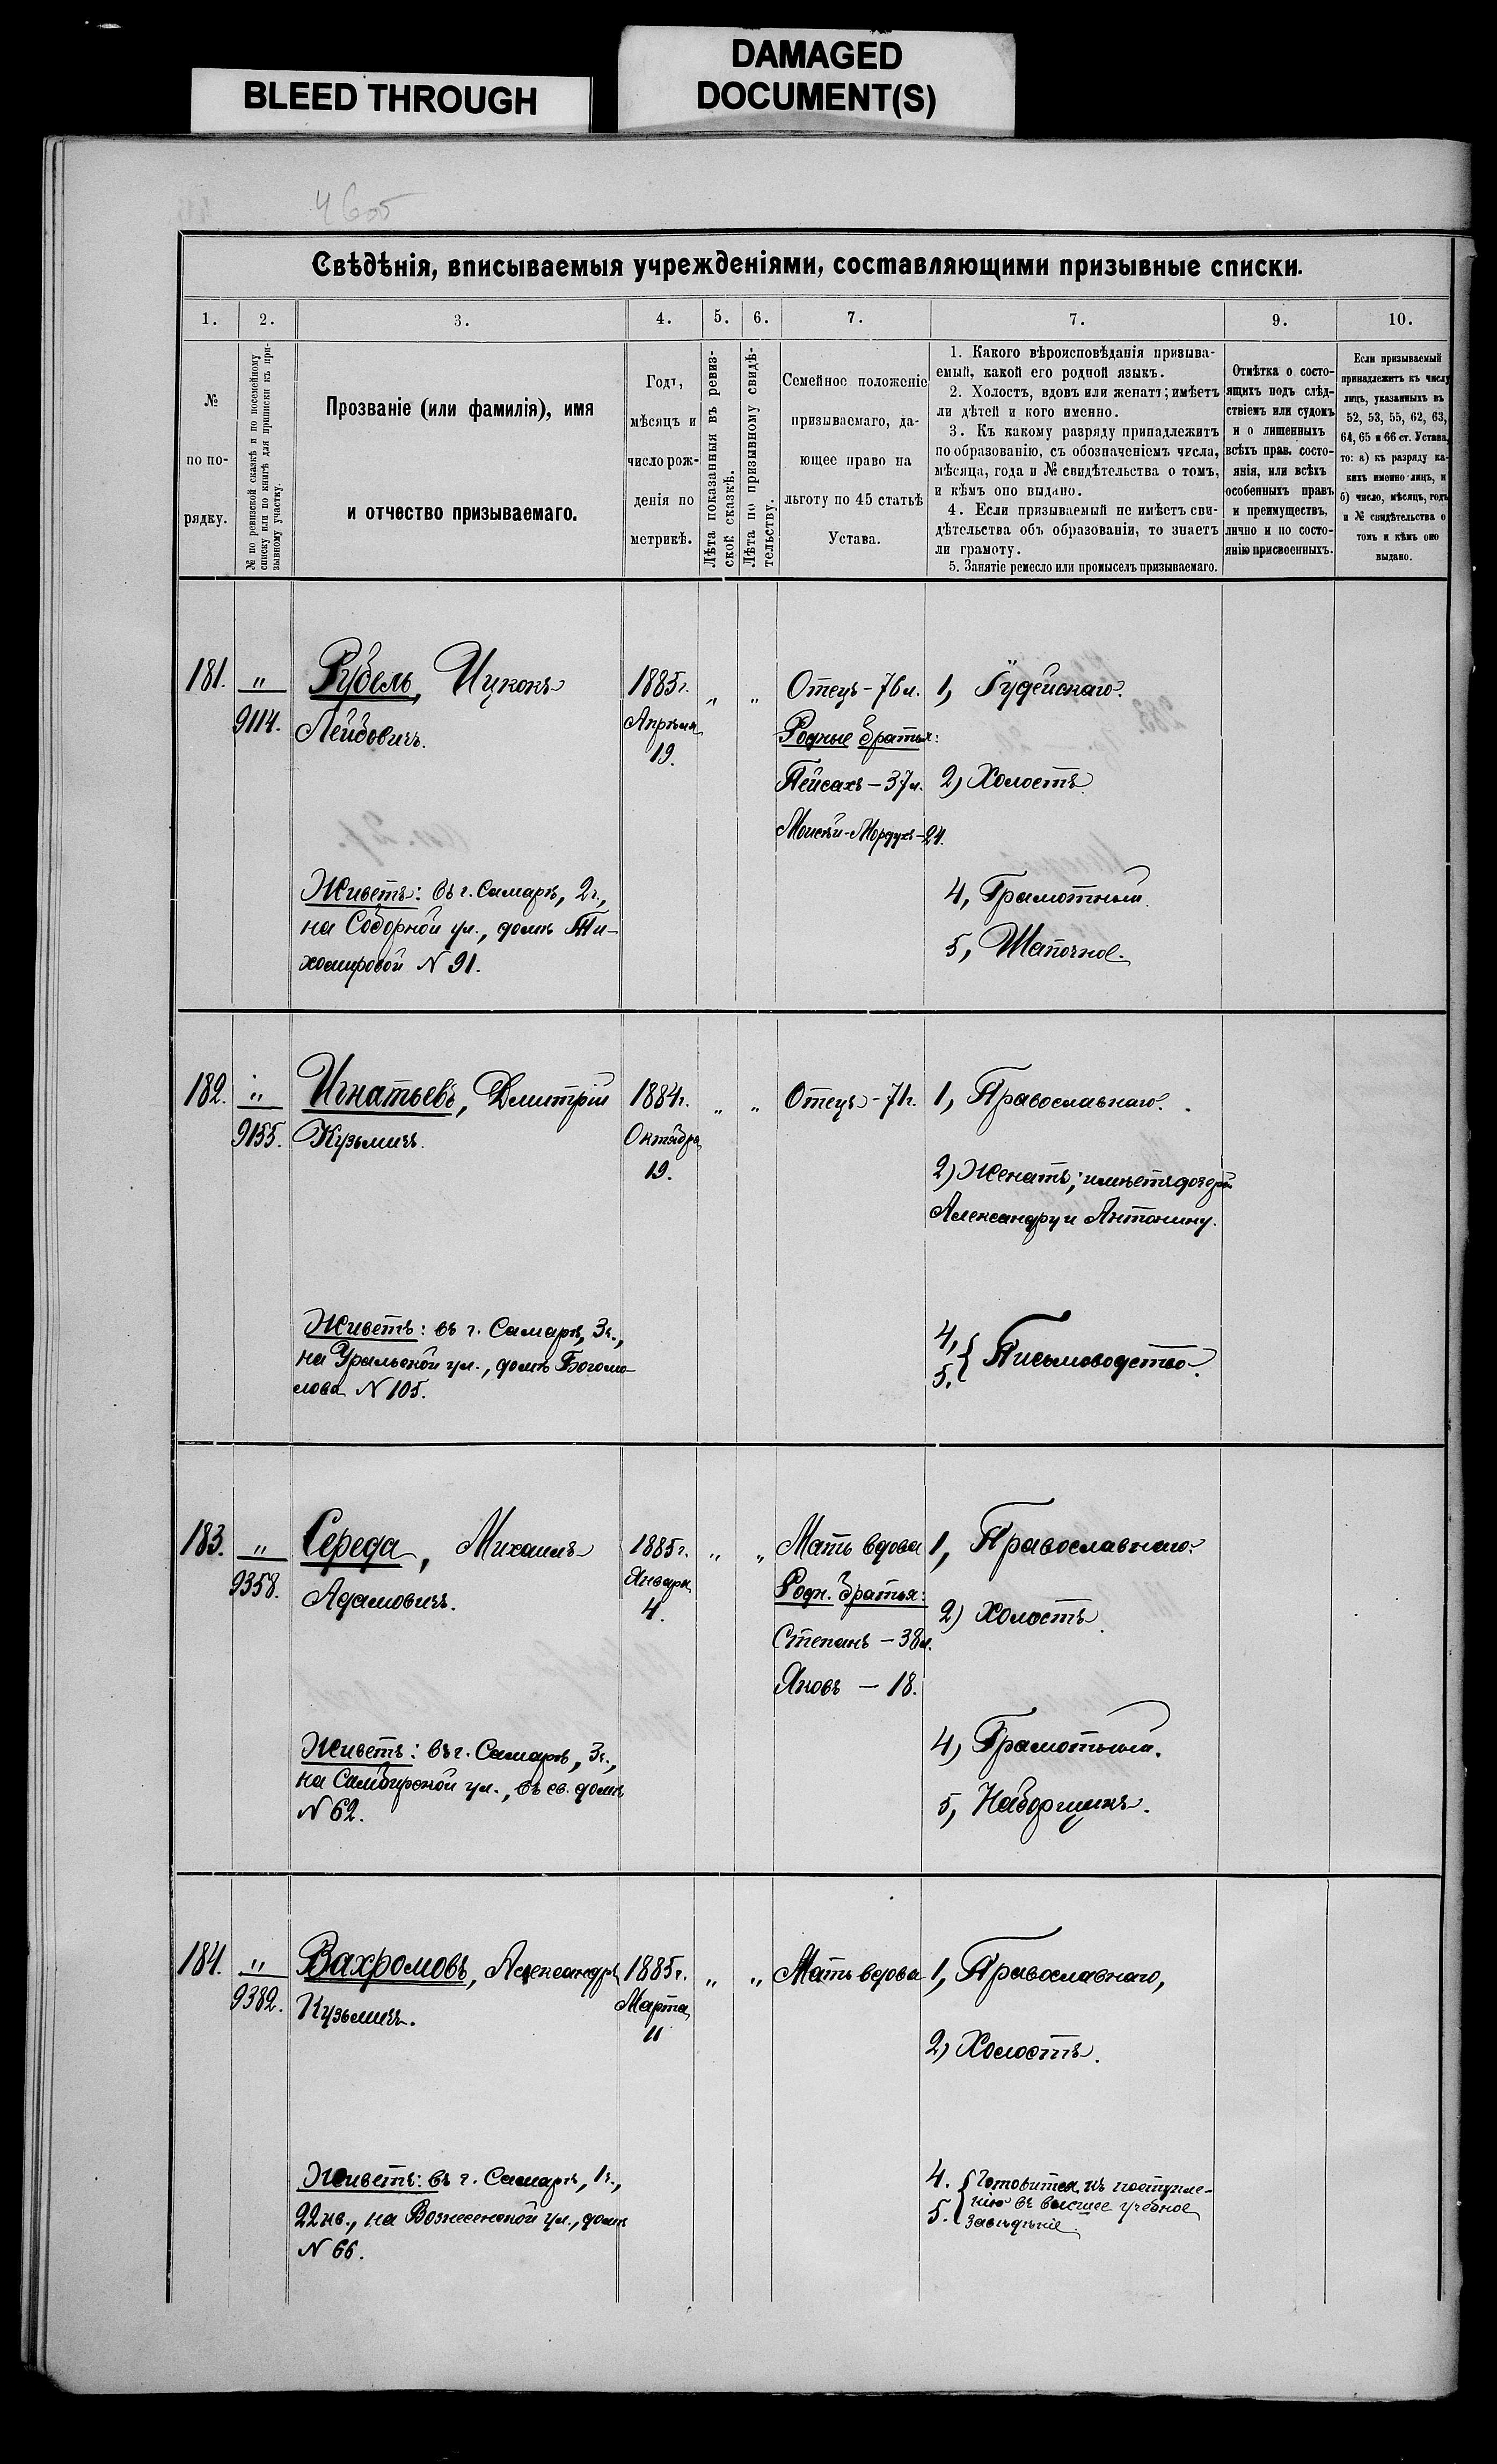 BLEED THROUGH
DAMAGED
DOCUMENT(S)
Свѣдѣнія, вписываемыя учрежденіями, составляющими призывные списки.
1. 2. 3. 4. 5. 6. 7. 7. 9. 10.
№
по по-
рядку.
№ по ревизской сказкѣ и по посемейному
списку или по книгѣ для приписки къ при-
зывному участку.
Прозваніе (или фамилія), имя
и отчество призываемаго.
Годъ,
мѣсяцъ и
число рож-
денія по
метрикѣ.
Лѣта показанныя въ ревиз-
ской сказкѣ.
Лѣта по призывному свидѣ-
тельству.
Семейное положеніе
призываемаго, да-
ющее право на
льготу по 45 статьѣ
Устава.
1. Какого вѣроисповѣданія призыва-
емый, какой его родной языкъ.
2. Холостъ, вдовъ или женатъ; имѣетъ
ли дѣтей и кого именно.
3. Къ какому разряду принадлежитъ
по образованію, съ обозначеніемъ числа,
мѣсяца, года и № свидѣтельства о томъ,
и кѣмъ оно выдано.
4. Если призываемый не имѣетъ сви-
дѣтельства объ образованіи, то знаетъ
ли грамоту.
5. Занятіе ремесло или промыселъ призываемаго.
Отмѣтка о состо-
ящихъ подъ слѣд-
ствіемъ или судомъ
и о лишенныхъ
всѣхъ прав. состо-
янія, или всѣхъ
особенныхъ правъ
и преимуществъ,
лично и по состо-
янію присвоенныхъ.
Если призываемый
принадлежитъ къ числу
лицъ, указанныхъ въ
52, 53, 55, 62, 63,
64, 65 и 66 ст. Устава,
то: а) къ разряду ка-
кихъ именно лицъ, и
б) число, мѣсяцъ, годъ
и № свидѣтельства о
томъ и кѣмъ оно
выдано.
181. „ 9114.
Рубель, Ицкокъ
Лейбовичъ.
Живетъ: въ г. Самарѣ, 2 ч.,
на Соборной ул., домъ Ти-
хомировой N 91.
1885 г.
Апрѣля
19.
„ „
Отецъ - 76 л.
Родные братья:
Пейсахъ - 37 л.
Моисѣй-Мордухъ - 24.
1, Іудейскаго.
2) Холостъ.
4, Грамотный.
5, Шапочное.
182. „ 9155.
Игнатьевъ, Дмитрій
Кузьмичъ.
Живетъ: въ г. Самарѣ, 3 ч.,
на Уральской ул., домъ Богомо-
лова N 105.
1884 г.
Октября
19.
„ „
Отецъ - 71 г.
1, Православнаго.
2) Женатъ; имѣетъ дочерей
Александру и Антонину.
4,
5. { Письмоводство.
183. „ 9358.
Середа, Михаилъ
Адамовичъ.
Живетъ: въ г. Самарѣ, 3 ч.,
на Симбирской ул., въ св. домѣ
N 62.
1885 г.
Января
4.
„ „
Мать вдова
Родн. братья:
Степанъ - 38 л.
Яковъ - 18.
1, Православнаго.
2) Холостъ.
4) Грамотный.
5, Наборщикъ.
184. „ 9382.
Вахромовъ, Александръ
Кузьмичъ.
Живетъ: въ г. Самарѣ, 1 ч.,
22 кв., на Вознесенской ул., домъ
N 66.
1885 г.
Марта
11
„ „
Мать вдова
1, Православнаго,
2) Холостъ.
4.
5. { Готовится къ поступле-
нію въ высшее учебное
заведеніе.